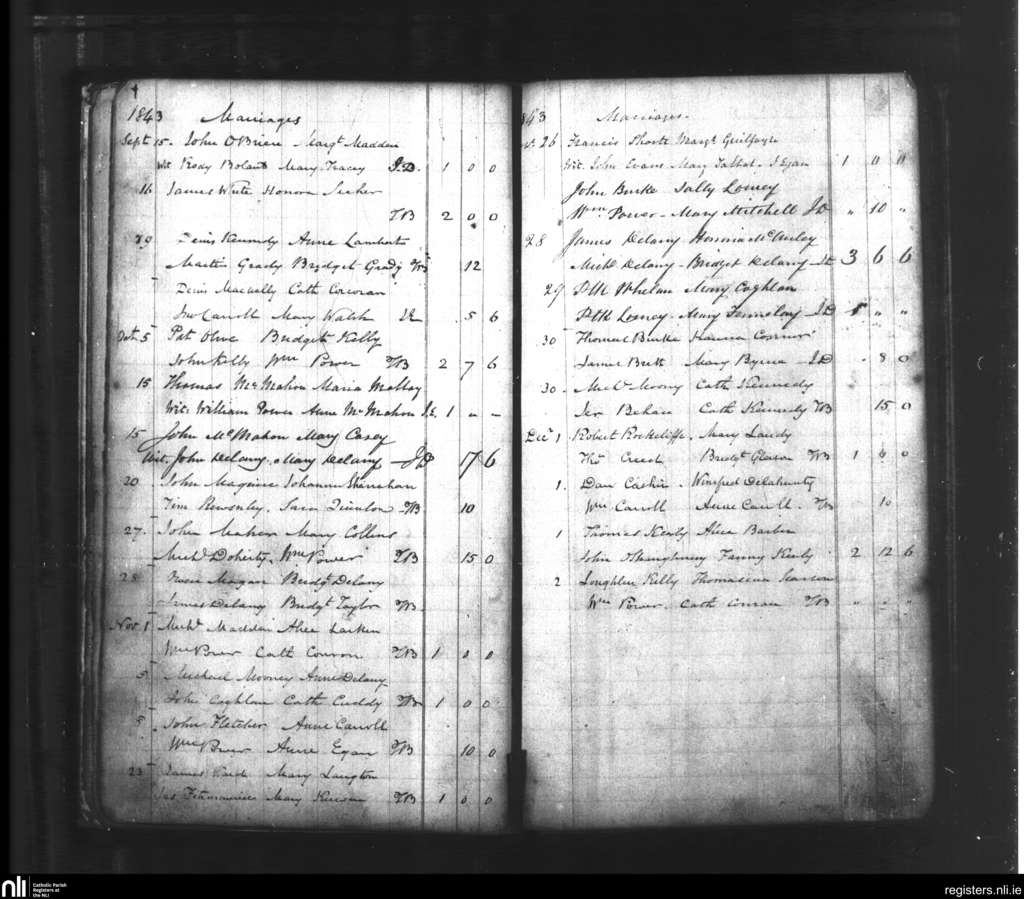 1843 Marriages
Sept 15. John O'Brien Margt Madden
Wit Rody Boland Mary Tracey J.D. 1 0 0
16 James White Honora
TB 2 0 0
29 Denis Kennedy Anne Lambert
Martin Grady Bridget Grady TB 12
Denis Cath Corcoran
Jno Carroll Mary Walsh 5 6
Oct 5 Pat Bridget Kelly
John Kelly Wm Power TB 2 7 6
15 Thomas McMahon Maria Molloy
Wit. William Power Anne McMahon 1 - -
15 John McMahon Mary Casey
Wit. John Delany. Mary Delany JD 17 6
20 John Maguire Johanna Shanahan
Tim Sara Quinlan TB 10
27. John Meher Mary Collins
Michl Doherty, Wm Power TB 15 0
28 Owen Magan Bridgt Delany
James Delany Bridgt Taylor TB
Nov 1 Michl Madden Alice Larkin
Wm Power Cath Conron TB 1 0 0
5 Michael Mooney Anne Delany
John Coghlan Cath Cuddy TB 1 0 0
5 John Fletcher Anne Carroll
Wm Power Anne Egan TB 10 0
23 James Mary Langton
Jas Fitzmaurice Mary TB 1 0 0
1843 Marriages.
26 Francis Short Margt Guilfoyle
Wit. John Evans Mary Talbot. J Egan 1 0 0
John Burke Sally Looney
Wm Power - Mary Mitchell JD " 10 "
28 James Delany
Michl Delany - Bridget Delany 3 6 6
29 Patk Whelan Mary Coghlan
Patk Looney - Mary JD " "
30 Thomas Burke Connor
James Mary Byrne JD . 8 0
30 Michl Moony Cath Kennedy
Jer Behan Cath Kennedy TB 15 0
Decr 1 Robert Rockcliffe. Mary Landy
Ths Creed Bridgt Gleeson TB 1 0 0
1. Dan Cashin. Winifred Delahunty
Wm Carroll Anne Carroll. TB 10
1 Thomas Kenly Alice
John Fanny Kenly 2 12 6
2 Loughlin Kelly Thomasina
Wm Power. Cath Conran TB " - "
nli Catholic Parish
Registers at
the NLI
registers.nli.ie